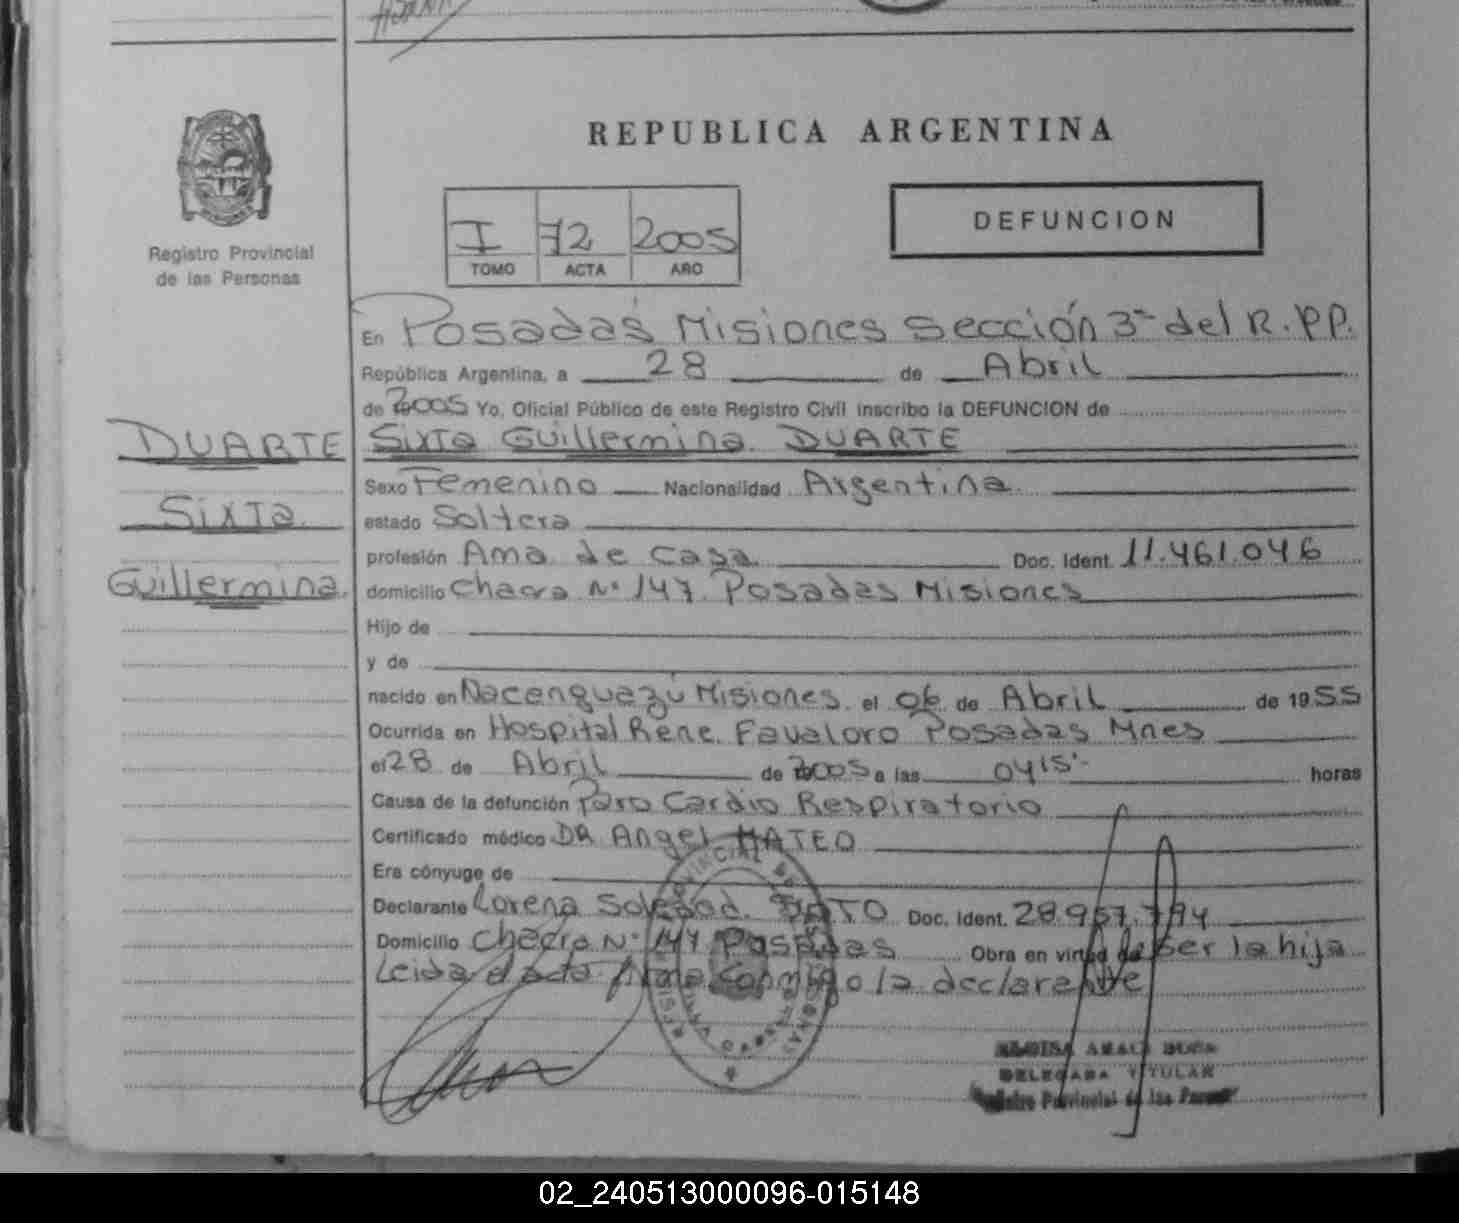 REPUBLICA ARGENTINA
Registro Provincial
de las Personas
I 72 2005
TOMO ACTA AÑO
DEFUNCION
En Posadas Misiones Sección 3ª del R.P.P.
República Argentina, a 28 de Abril
de 2005 Yo, Oficial Público de este Registro Civil inscribo la DEFUNCION de
DUARTE
Sixta
Guillermina
Sixta Guillermina DUARTE
Sexo Femenino Nacionalidad Argentina
estado Soltera
profesión Ama de casa Doc. Ident. 11.461.046
domicilio Chacra Nº 147 Posadas Misiones
Hijo de
y de
nacido en Ñacanguazú Misiones el 06 de Abril de 1955
Ocurrida en Hospital Rene Favaloro Posadas Mnes
el 28 de Abril de 2005 a las 0415' horas
Causa de la defunción Paro Cardio Respiratorio
Certificado médico DR Angel MATEO
Era cónyuge de
Declarante Lorena Soledad Doc. Ident. 28.957.794
Domicilio Chacra Nº 147 Posadas Obra en virtud de ser la hija
Leida el acta firma conmigo la declarante
DELEGADA TITULAR
Registro Provincial de las Personas
02_240513000096-015148